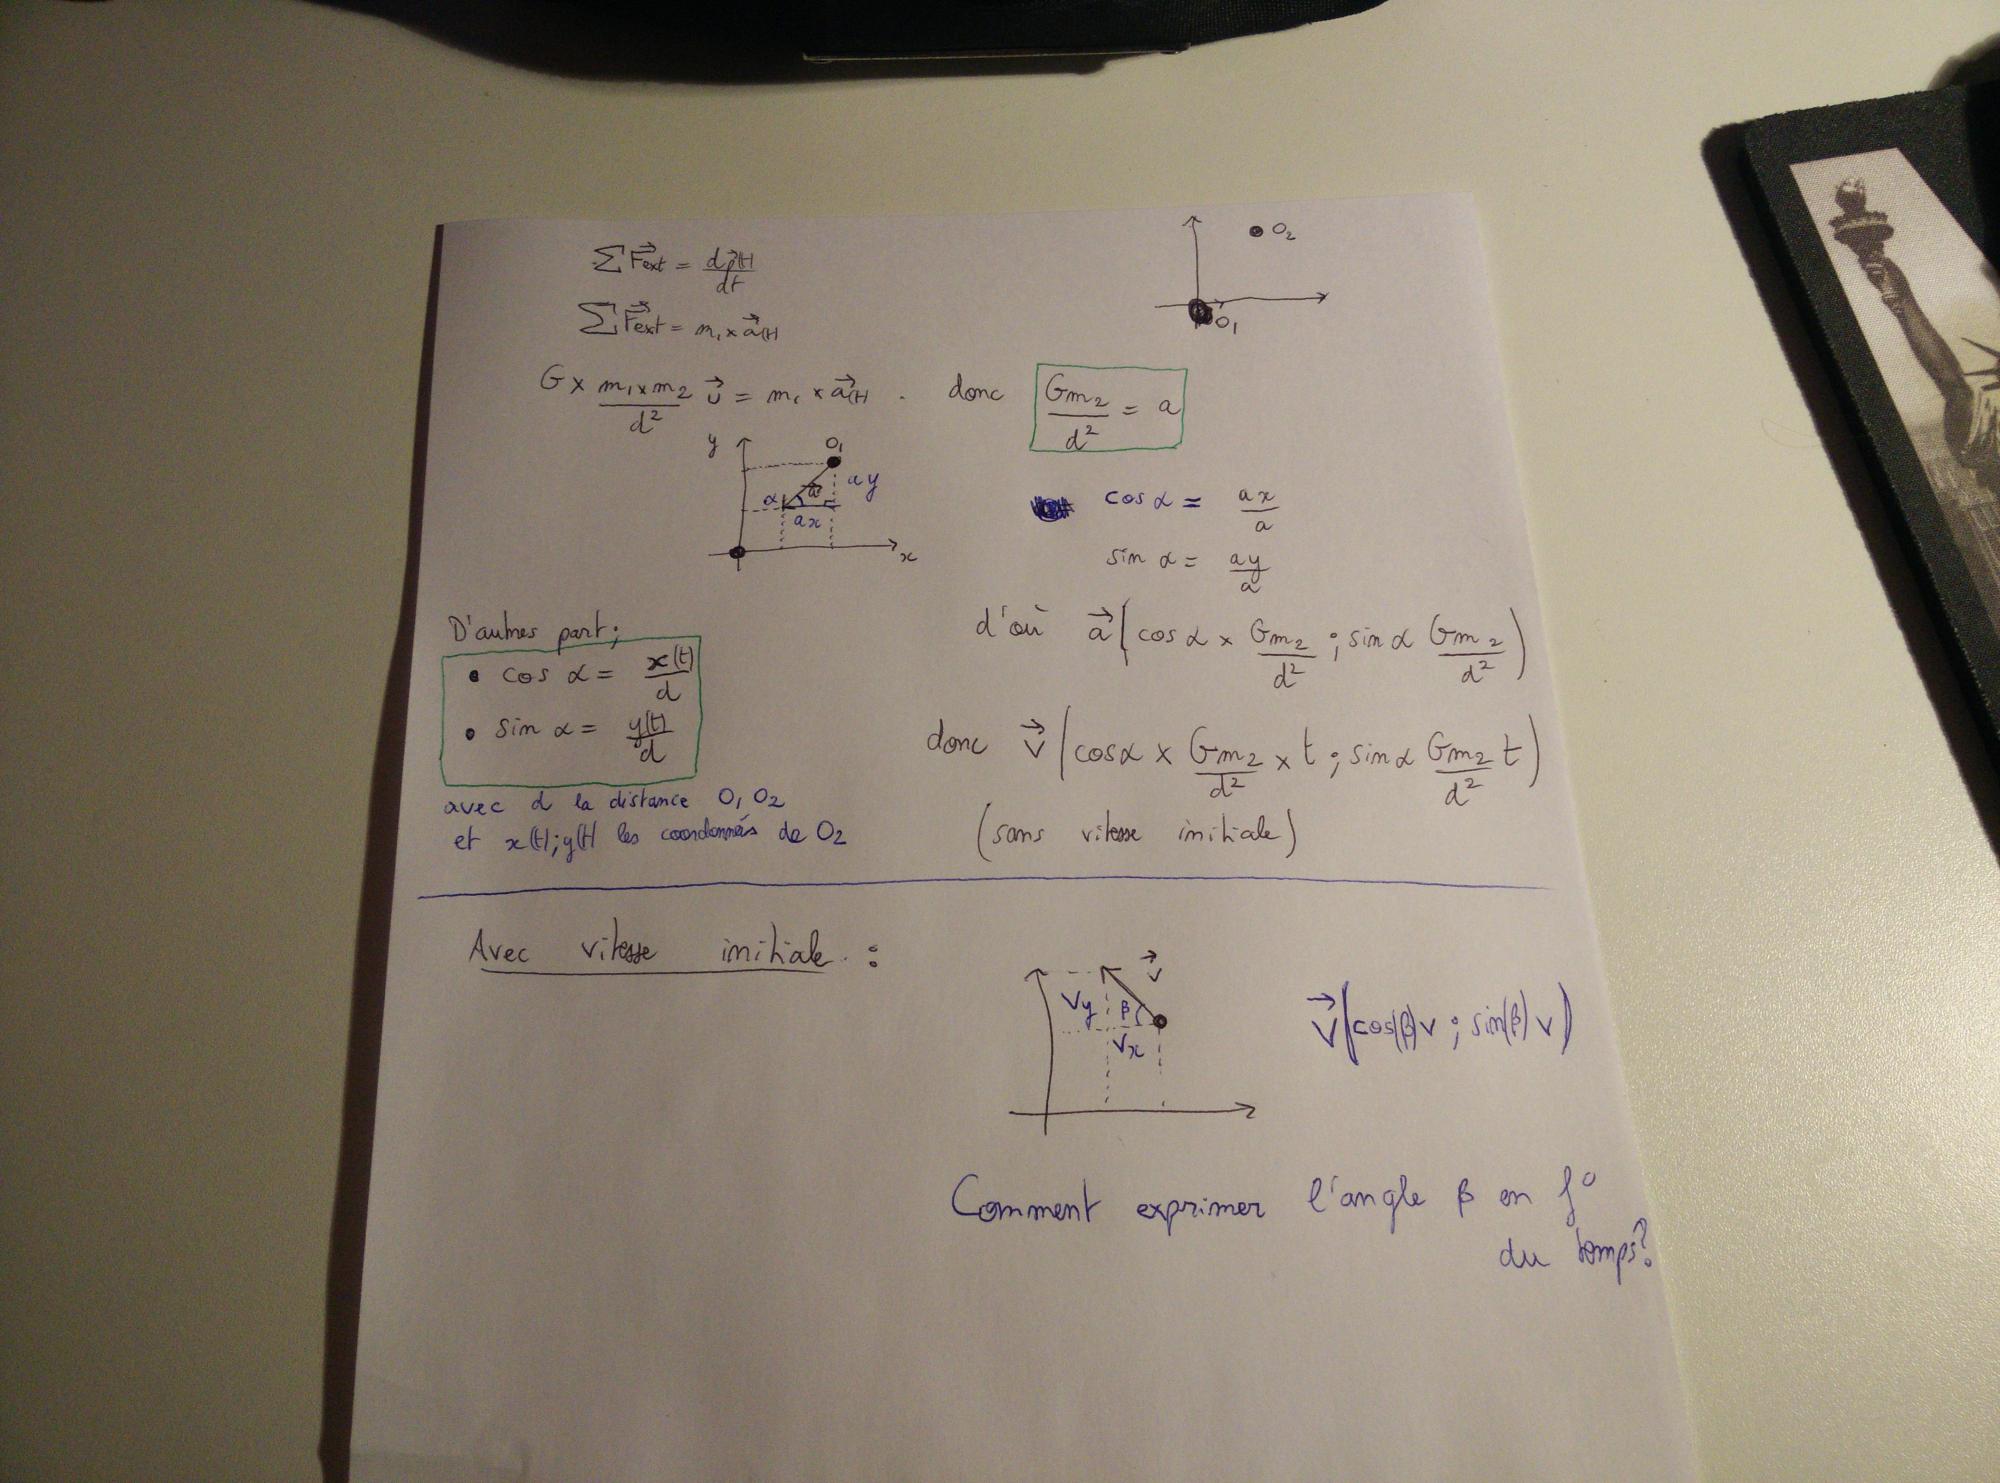 ΣF⃗ext = dp⃗(t)/dt
O₂
ΣF⃗ext = m₁ × a⃗(t)
O₁
G × (m₁ × m₂)/d² u⃗ = m₁ × a⃗(t) . donc Gm₂/d² = a
y O₁
α a⃗ ay
ax
x
cos α = ax/a
sin α = ay/a
D'autres part;
• cos α = x(t)/d
• sin α = y(t)/d
avec d la distance O₁ O₂
et x(t); y(t) les coordonnés de O₂
d'où a⃗ (cos α × Gm₂/d² ; sin α Gm₂/d²)
donc v⃗ (cos α × Gm₂/d² × t ; sin α Gm₂/d² t)
(sans vitesse initiale)
Avec vitesse initiale :
v⃗
Vy β
Vx
V⃗ (cos(β) v ; sin(β) v)
Comment exprimer l'angle β en f°
du temps?